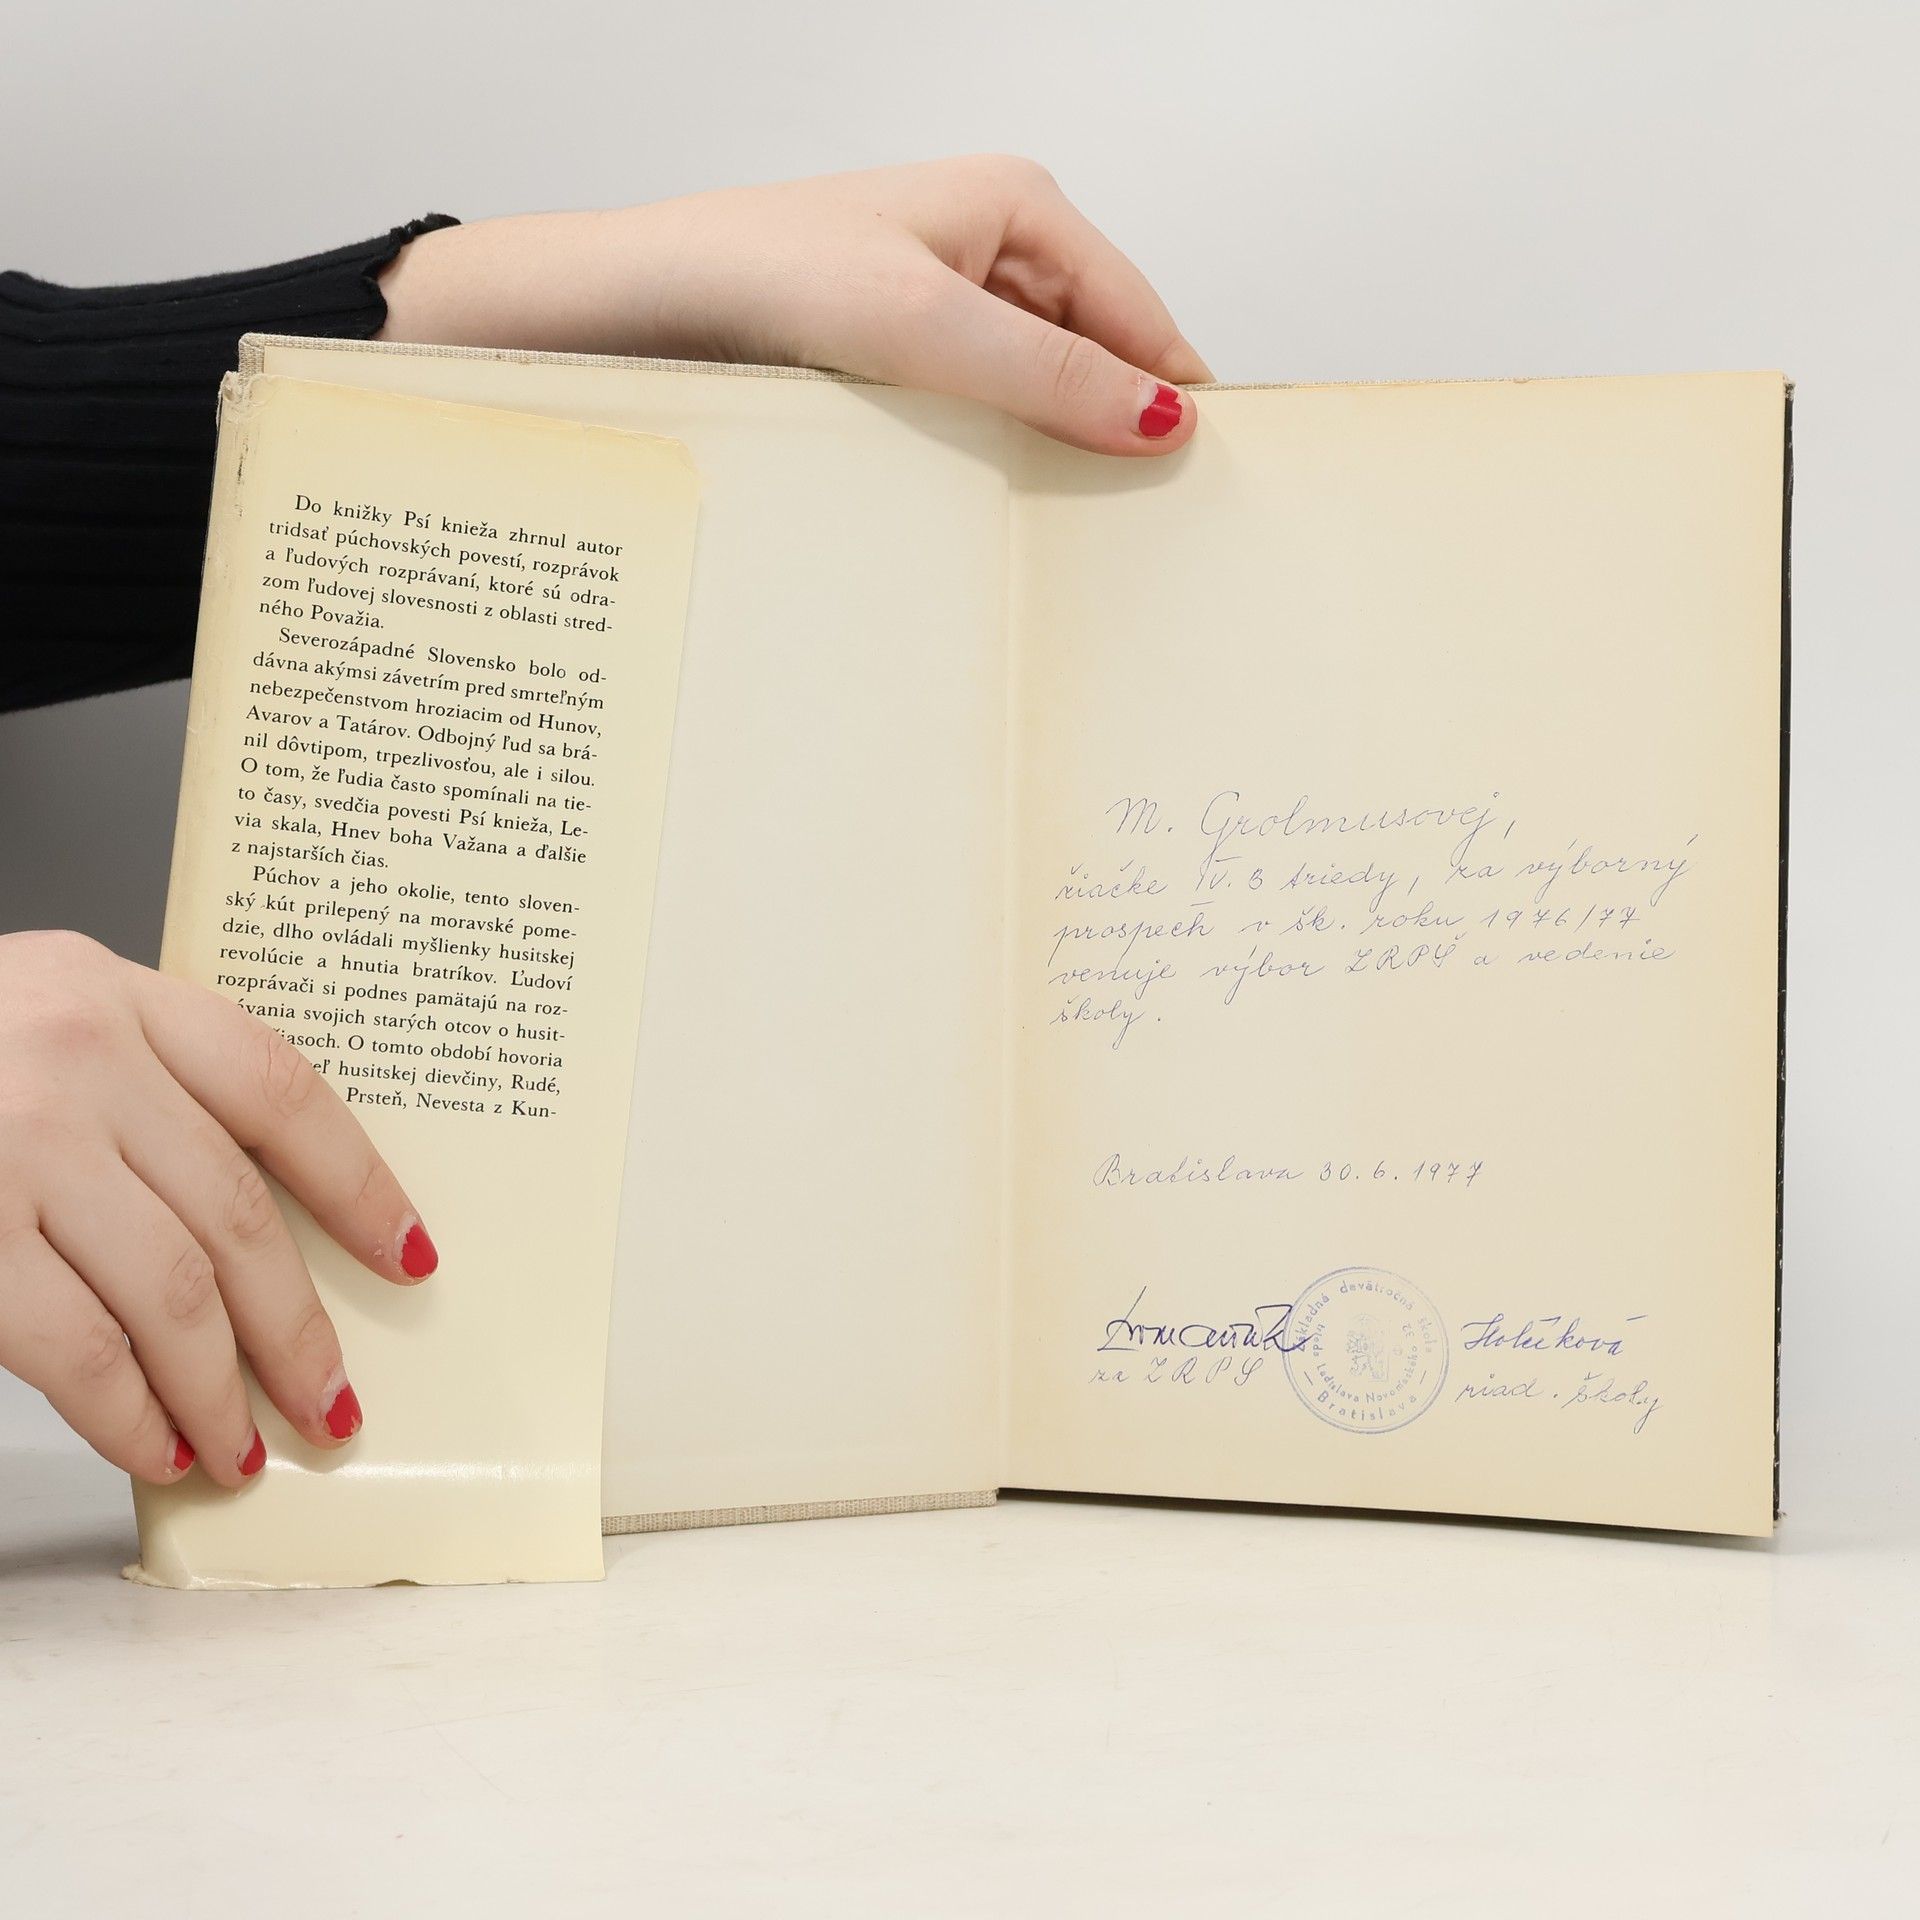 Do knižky Psí knieža zhrnul autor
tridsať púchovských povestí, rozprávok
a ľudových rozprávaní, ktoré sú odra-
zom ľudovej slovesnosti z oblasti stred-
ného Považia.
Severozápadné Slovensko bolo od-
dávna akýmsi závetrím pred smrteľným
nebezpečenstvom hroziacim od Hunov,
Avarov a Tatárov. Odbojný ľud sa brá-
nil dôvtipom, trpezlivosťou, ale i silou.
O tom, že ľudia často spomínali na tie-
to časy, svedčia povesti Psí knieža, Le-
via skala, Hnev boha Važana a ďalšie
z najstarších čias.
Púchov a jeho okolie, tento sloven-
ský kút prilepený na moravské pome-
dzie, dlho ovládali myšlienky husitskej
revolúcie a hnutia bratríkov. Ľudoví
rozprávači si podnes pamätajú na roz-
ávania svojich starých otcov o husit-
iasoch. O tomto období hovoria
eľ husitskej dievčiny, Rudé,
Prsteň, Nevesta z Kun-
M. Grolmusovej,
žiačke IV. B triedy, za výborný
prospech v šk. roku 1976/77
venuje výbor ZRPŠ a vedenie
školy.
Bratislava 30. 6. 1977
za ZRPŠ
riad. školy
Základná deväťročná škola
Ladislava Novomeského 32
Bratislava